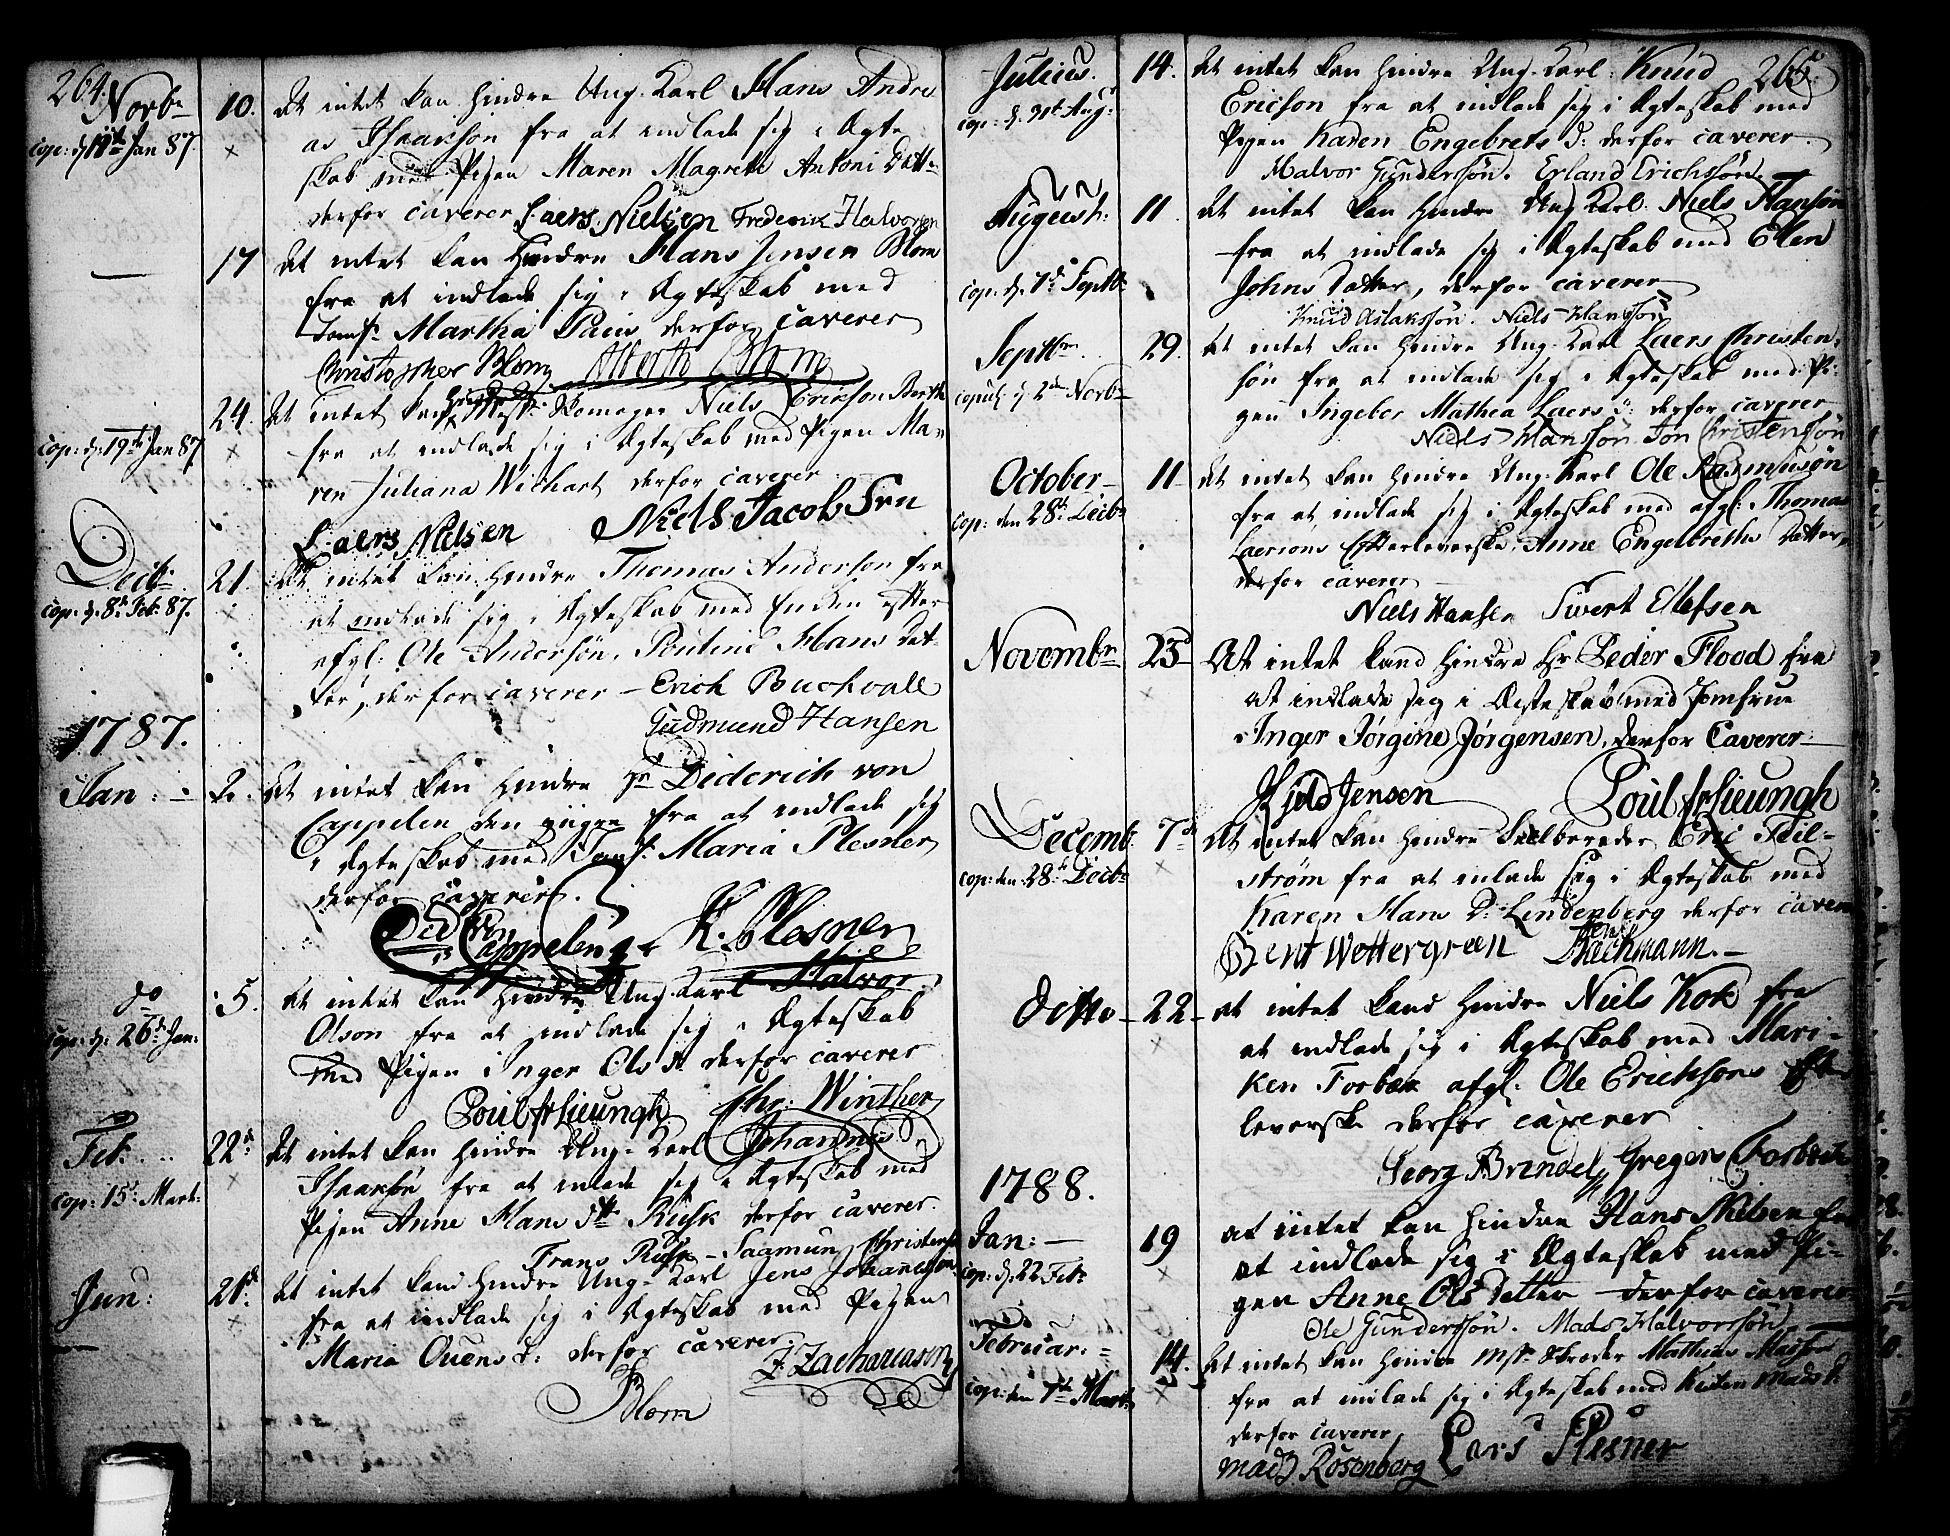 264.
Novbr 10. At intet kan hindre Ung-Karl Hans Andre
cop: d: 11te Jan 87. as Isaacsøn fra at indlade sig i Ægte
skab med Pigen Maren Magrete Antoni Datt
derfor caverer Laers Nielsen Frederik Halvorsen
17 At intet kan hindre Hans Jensen Blom
fra at indlade sig i Ægteskab med
Jomfr Martha Paus derfor caverer
Christopher Blom
24. At intet kan hindre Mestr: Skomager Niels Erikson Berth
cop: d: 19te Jan 87 fra at indlade sig i Ægteskab med Pigen Ma
ren Juliana Wichart derfor caverer
Laers Nielsen Niels Jacob Srn
Decbr: 21. At intet kan hindre Thomas Anderson fra
cop: d. 8de Feb: 87. at indlade sig i Ægteskab med Enden efter
afgl: Ole Andersøn, Pouline Hans Dat-
ter, derfor caverer - Erich Buchvall
Gudmund Hansen
1787.
Jan: 2. At intet kan hindre Hr Diderich von
Cappelen den yngre fra at indlade sig
i Ægteskab med Jomf. Maria Plesner
derfor caverer.
Did: v: Cappelen K. Plesner
do 5. At intet kan hindre Ung Karl Halvor
cop: d: 26de Jan: Olson fra at indlade sig i Ægteskab
med Pigen Inger Ols dr derfor caverer
Poul fr Lieungh Tho: Winther
Feb: 22d At intet kan hindre Ung-Karl Johannes
cop: 15de Mart: Isaacsøn fra at inlade sig i Ægteskab med
Pigen Anne Hans dtr Riisk derfor caverer.
Frans Riisk - Saamun Christensen
Jun: 21d. At intet kand hindre Ung-Karl Jens Johanesøn
fra at indlade sig i Ægteskab med Pigen
Maria Ouens d: derfor caverer.
Blom F. Zachariasen
Julius. 14. At intet kan hindre Ung-Karl: Knud 265.
cop: d. 31te Aug: Ericson fra at indlade sig i Ægteskab med
Pigen Karen Engebrets D: derfor caverer.
Halvor Gundersøn. Erland Erichsøn.
August: 11. At intet kan hindre Ung Karl: Niels Hansøn
fra at indlade sig i Ægteskab med Elen
cop: d. 7de Septbr Johns Datter, derfor caverer
Knud Aslaksøn. Niels Hansøn
Septbr 29. At intet kan hindre Ung-Karl Laers Christen
copul: d 2den Novbr søn fra at indlade sig i Ægteskab med Pi-
gen Ingeber Mathea Laers d: derfor caverer
Niels Hansøn Jon Christensøn
October 11 At intet kan hindre Ung-Karl Ole Rasmusøn
cop: den 28de Decbr fra at indlade sig i Ægteskab med afgl: Thomas
Laersons Efterleverske, Anne Engelbreths Datter,
derfor caverer
Niels Hansen Sivert Ellefsen
Novembr 23d At intet kand hindre Hr Peder Flood fra
at indlade sig i Ægteskab med Jomfrue
Inger Jørgine Jørgensen, derfor Caverer
Kield Jensen Poul fr Lieungh
Decemb: 7d At intet kan hindre Eric Feil-
cop: den 28de Decbr strøm fra at inlade sig i Ægteskab med
Karen Hans D: Lindenberg derfor caverer
Bent Wettergreen Bachmann.
Ditto 22 at intet kand hindre Niels Kok fra
at indlade sig i Ægteskab med Mari-
ken Forbech afgl. Ole Erichsons Efter
leverske derfor caverer
Georg Brindel, Gregers Forbech
1788.
Jan: 19 at intet kan hindre Hans Nielsen fra
cop: d: 22 Feb: at indlade sig i Ægteskab med Pi-
gen Anne Ols Datter derfor caverer
Ole Gundersøn. Mads Halvorsøn
Februar: 14. At intet kan hindre Mstr: Skreder Mathias
cop: den 7de Mart: fra at indlade sig i Ægteskab med Kisten Mads D:
derfor caverer
Mads Rosenberg Lars Plesner